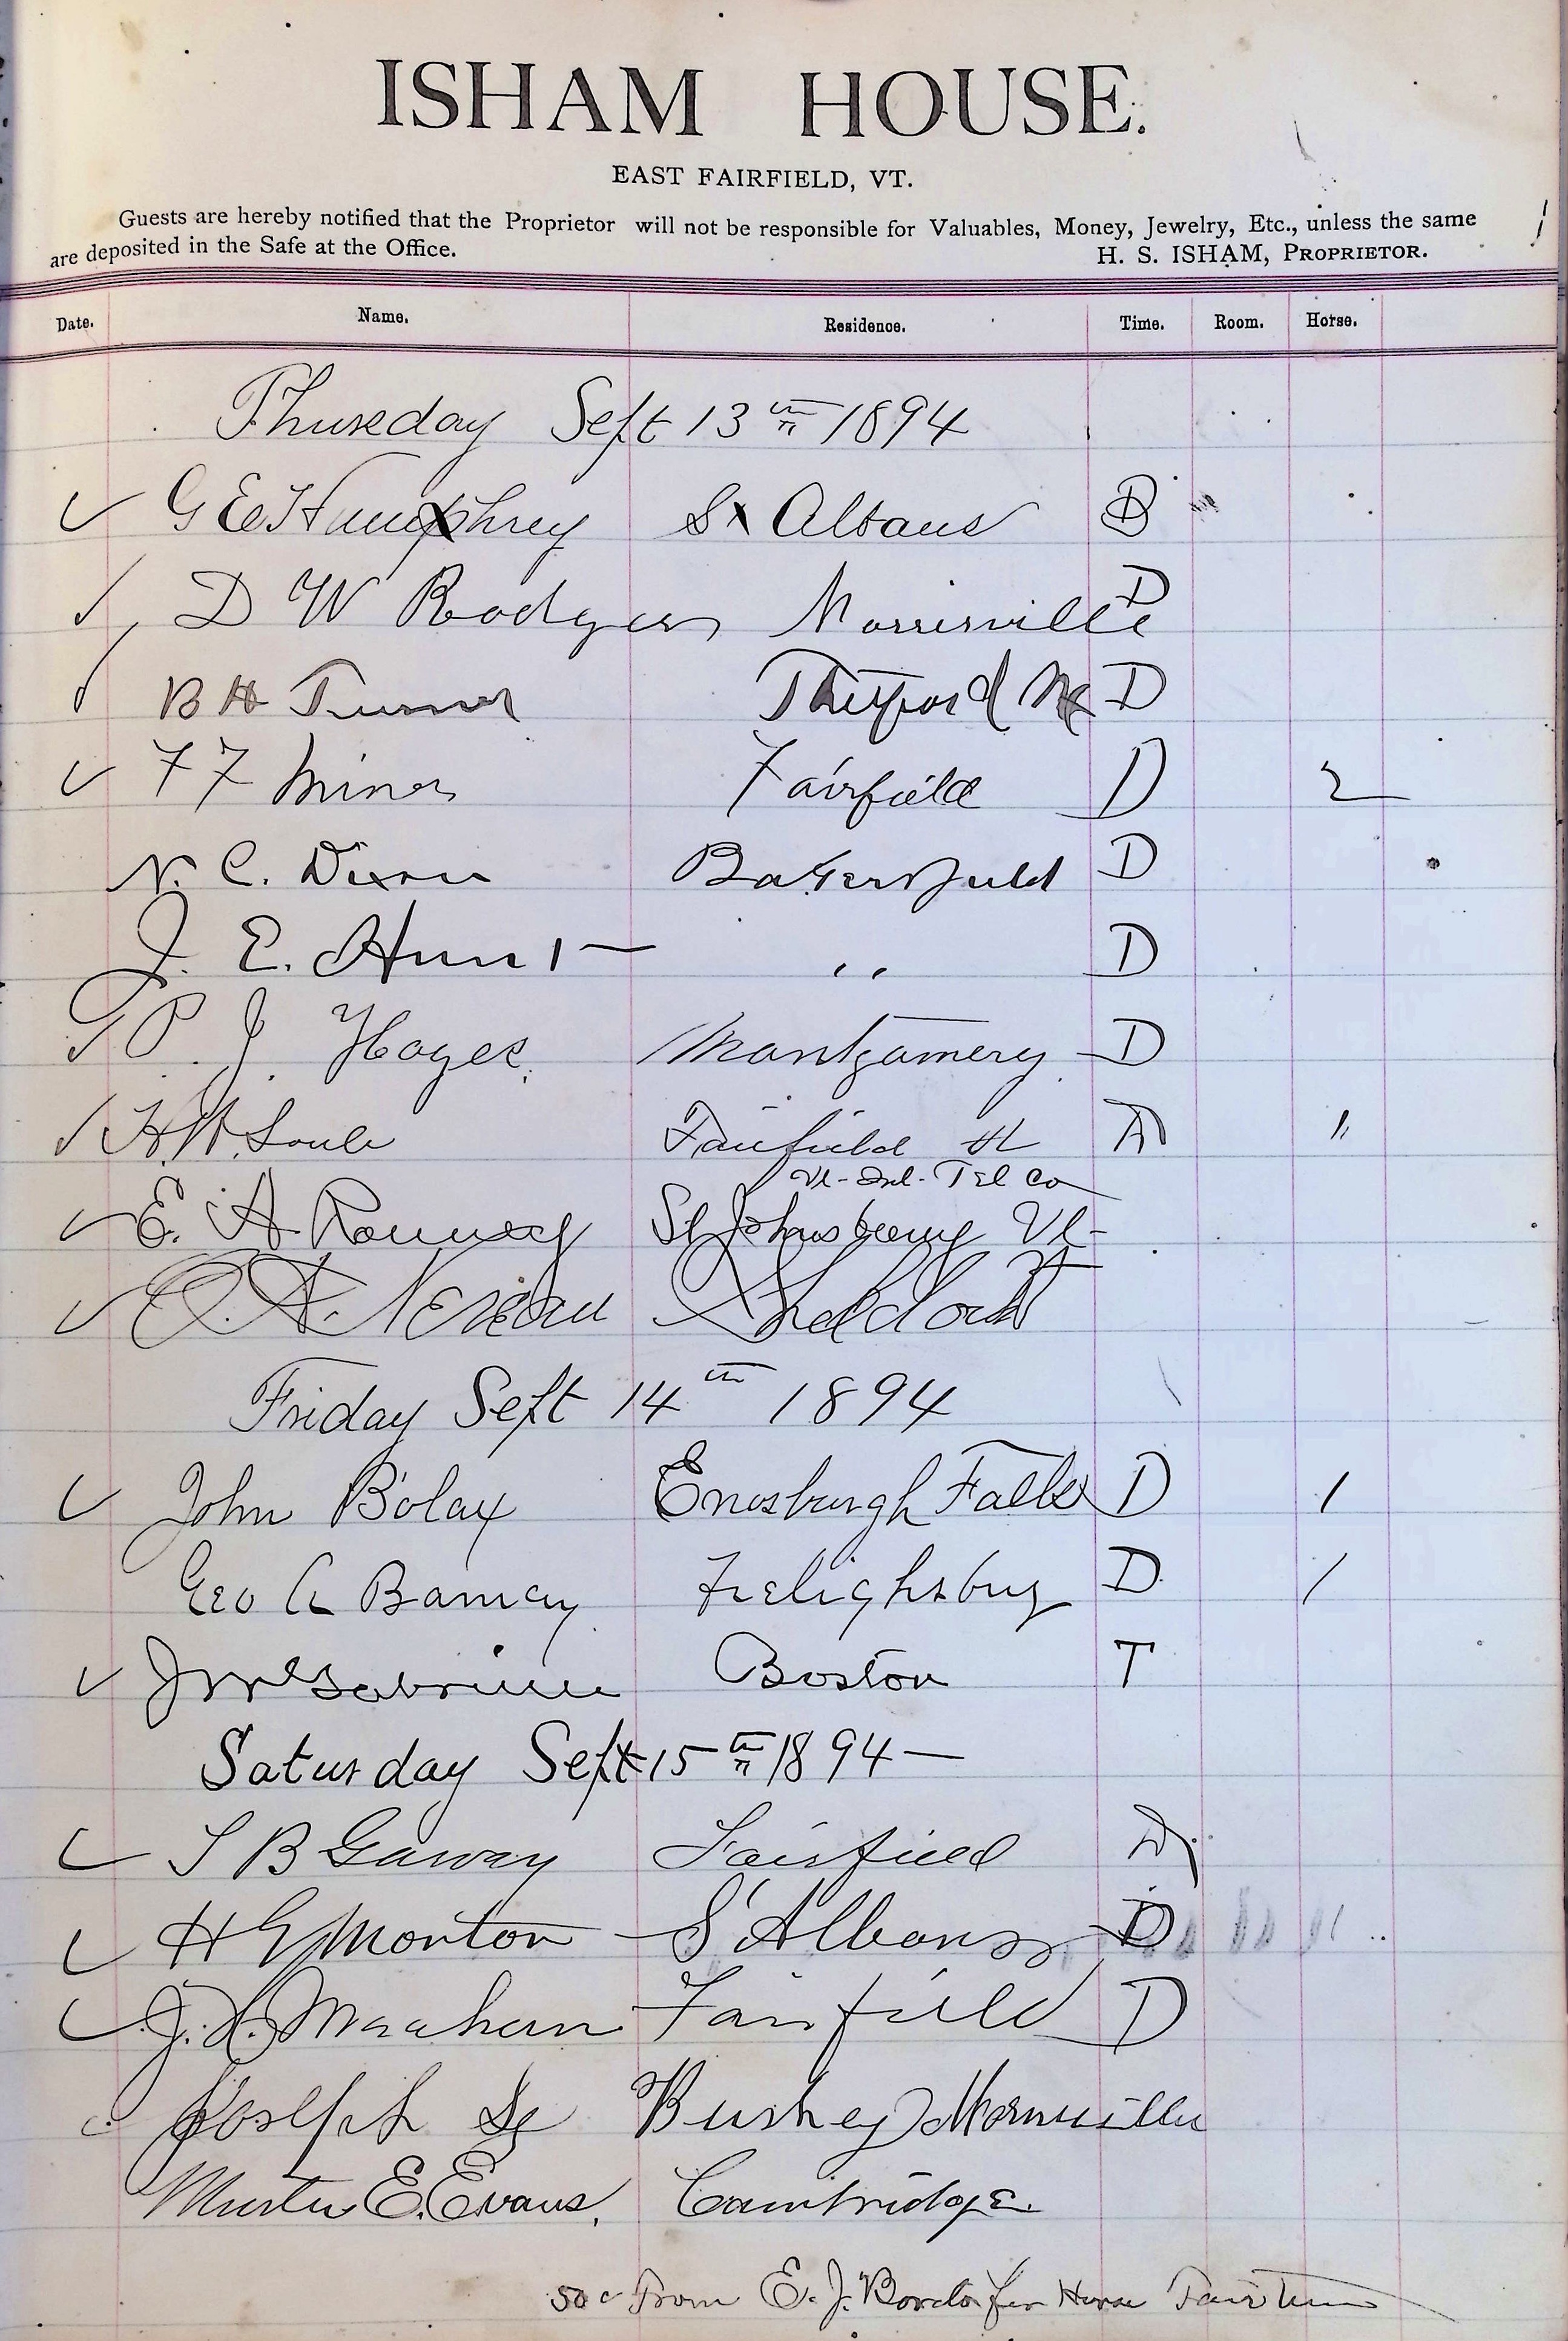 ISHAM HOUSE.
EAST FAIRFIELD, VT.
Guests are hereby notified that the Proprietor will not be responsible for Valuables, Money, Jewelry, Etc., unless the same
are deposited in the Safe at the Office. H. S. ISHAM, PROPRIETOR.
Date. Name. Residence. Time. Room. Horse.
Thursday Sept 13th 1894
G E Humphrey St Albans
D W Rodgers Morrisville D
B H Turner Thetford D
F F Miner Fairfield D 2
N. C. Dixon Bakersfield D
J. E. Hunt " D
P. J. Hayes Montgomery D
H. W. Soule Fairfield "
Tel Co
E. A. St Johnsbury Vt-
Sheldon
Friday Sept 14th 1894
John Bolax Enosburgh Falls D 1
Geo A Barney Frelighsburg D 1
Boston T
Saturday Sept 15th 1894
S B Fairfield D
H G Morton St Albans D
J. H. Fairfield D
Joseph Bushey
E. Evans. Cambridge.
50c From E. J. for Horse